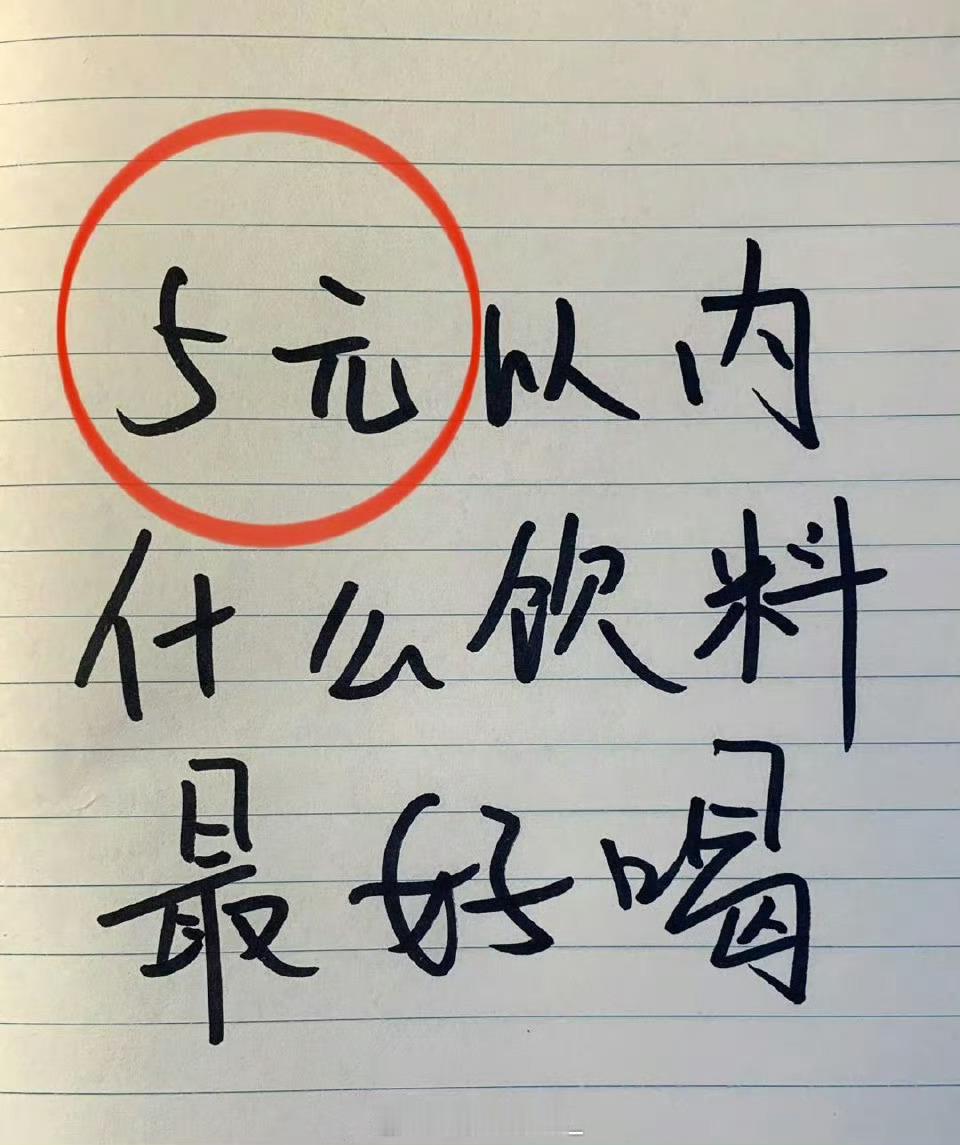 5元以内
什么饮料
最好喝